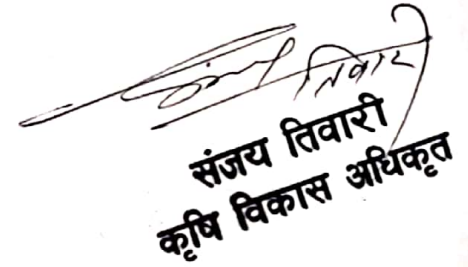 संजय तिवारी
संजय तिवारी
कृषि विकास अधिकृत